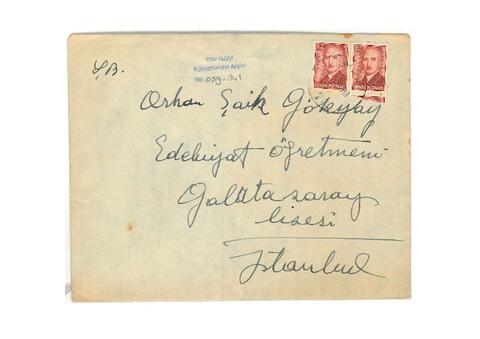 S.B.
TDV İSAM
Kütüphanesi Arşivi
No 059-341
Orhan Şaik Gökyay
Edebiyat öğretmeni
Galatasaray
lisesi
İstanbul